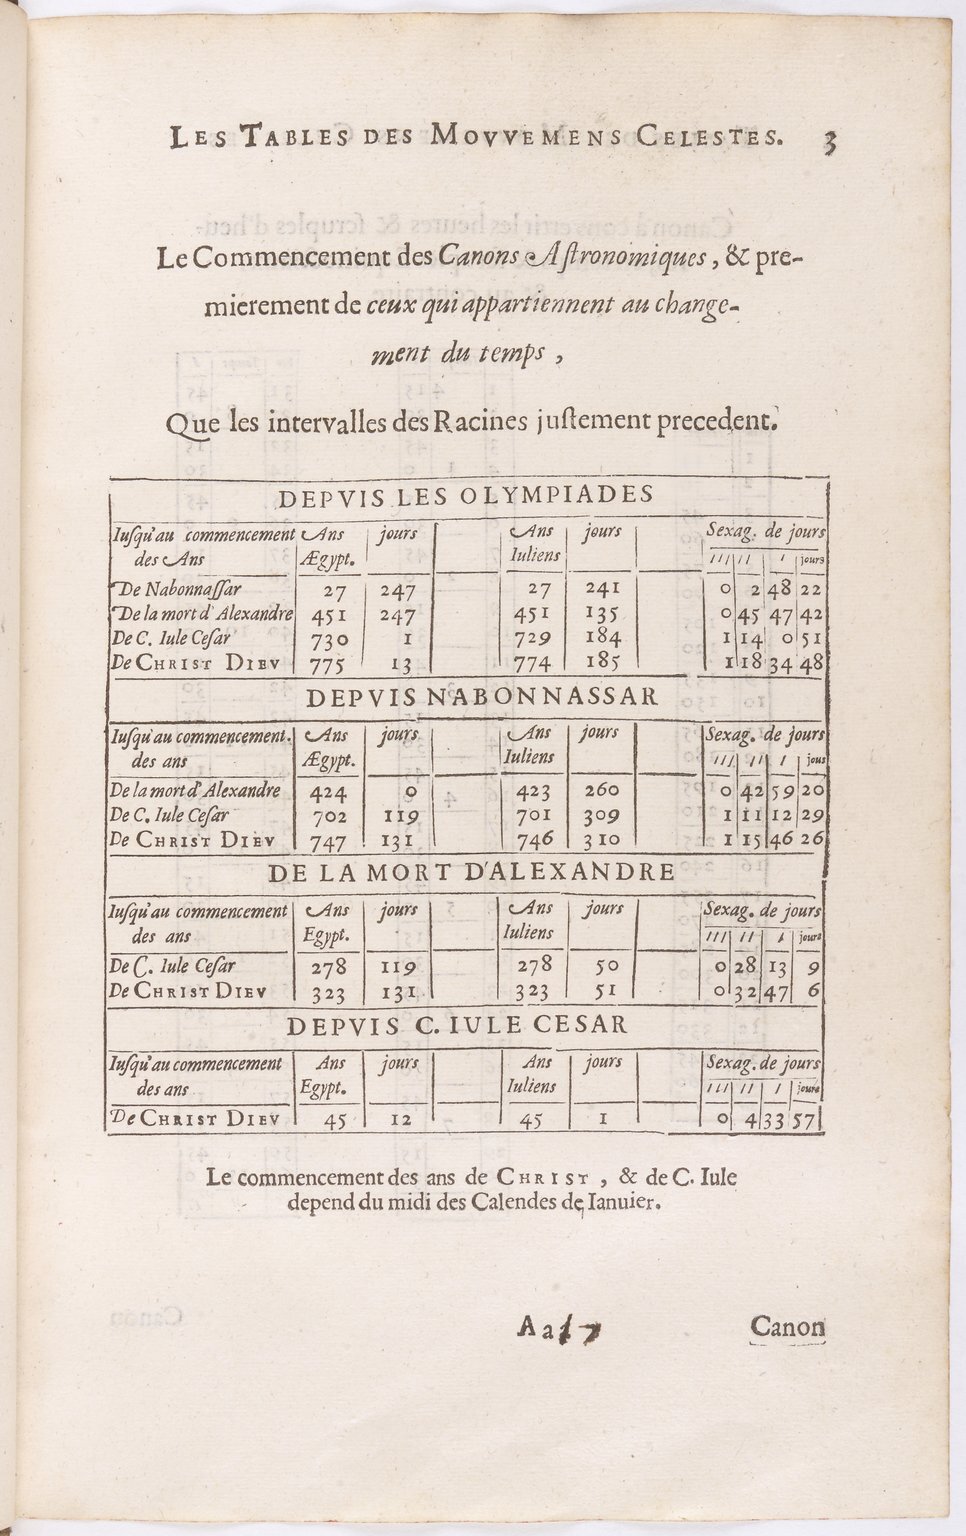 LES TABLES DES MOVVEMENS CELESTES. 3
Le Commencement des Canons Astronomiques, & pre-
mierement de ceux qui appartiennent au change-
ment du temps,
Que les intervalles des Racines juſtement precedent.
DEPVIS LES OLYMPIADES
Iuſqu'au commencement Ans jours Ans jours Sexag. de jours
des Ans Ægypt. Iuliens /// // / jours
De Nabonnaſſar 27 247 27 241 0 2 48 22
De la mort d'Alexandre 451 247 451 135 0 45 47 42
De C. Iule Ceſar 730 1 729 184 1 14 0 51
De CHRIST DIEV 775 13 774 185 1 18 34 48
DEPVIS NABONNASSAR
Iuſqu'au commencement. Ans jours Ans jours Sexag. de jours
des ans Ægypt. Iuliens /// // / jous
De la mort d'Alexandre 424 0 423 260 0 42 59 20
De C. Iule Ceſar 702 119 701 309 1 11 12 29
De CHRIST DIEV 747 131 746 310 1 15 46 26
DE LA MORT D'ALEXANDRE
Iuſqu'au commencement Ans jours Ans jours Sexag. de jours
des ans Egypt. Iuliens /// // / jours
De C. Iule Ceſar 278 119 278 50 0 28 13 9
De CHRIST DIEV 323 131 323 51 0 32 47 6
DEPVIS C. IVLE CESAR
Iuſqu'au commencement Ans jours Ans jours Sexag. de jours
des ans Egypt. Iuliens /// // / jours
De CHRIST DIEV 45 12 45 1 0 4 33 57
Le commencement des ans de CHRIST, & de C. Iule
depend du midi des Calendes de Ianuier.
Aa Canon